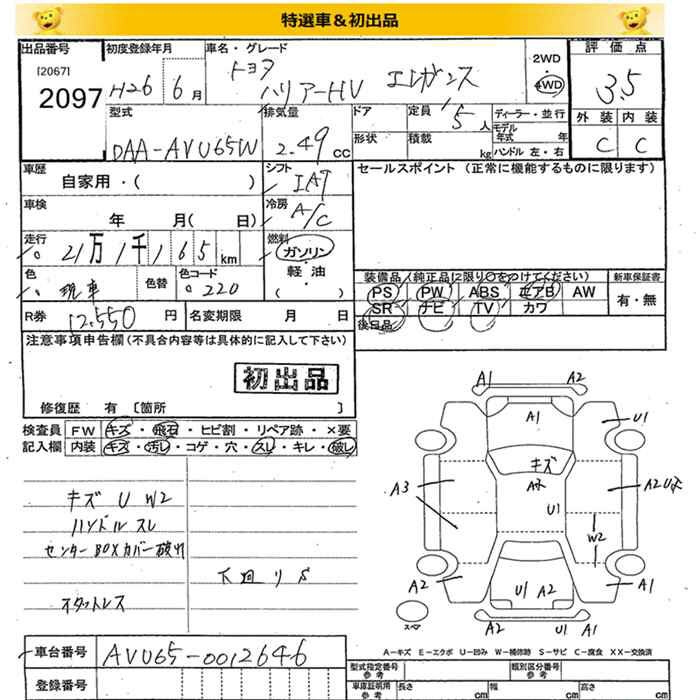 特選車＆初出品
出品番号 初度登録年月 車名・グレード 評価点
[2067] トヨタ 2WD
2097 H26 6月 ハリアーHV エレガンス 4WD 3.5
型式 排気量 ドア 定員 5人 ディーラー・並行 外装 内装
DAA-AVU65W 2.49cc 形状 積載 kg モデル年式 年 C C
ハンドル 左・右
車歴 シフト セールスポイント（正常に機能するものに限ります）
自家用・( ) IAT
車検 冷房
年 月( 日) A/C
走行 燃料
21万1千165km ガソリン
軽油・
色 色替 色コード ( ) 装備品（純正品に限り○をつけてください） 新車保証書
現車 220 PS PW ABS エアB AW 有・無
R券 12,550円 名変期限 月 日 SR ナビ TV カワ
後日品
注意事項申告欄(不具合内容等は具体的に記入して下さい)
初出品
修復歴 有 〔箇所 〕
検査員 FW キズ・飛石・ヒビ割・リペア跡・×要
記入欄 内装 キズ・汚レ・コゲ・穴・スレ・キレ・破レ
キズ U W2
ハンドル スレ
センターBOXカバー破れ
下廻りS
スタットレス
A1 A2
A1 U1
キズ
A3 A2
U1 W2
A2 U1 A2 A1
スペア A2 U1 A1
A－キズ E－エクボ U－凹み W－補修跡 S－サビ C－腐食 XX－交換済
車台番号 AVU65-0012646
型式指定番号 参考 類別区分番号 参考
登録番号 車庫証明用 参考 長さ cm 幅 cm 高さ cm